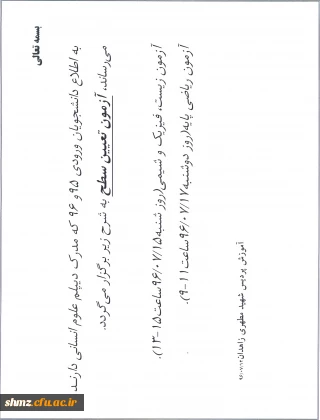 بسمه تعالی
به اطلاع دانشجویان ورودی ۹۵ و ۹۶ که مدرک دیپلم علوم انسانی دارند
می‌رساند، آزمون تعیین سطح به شرح زیر برگزار می‌گردد.
آزمون زیست، فیزیک و شیمی(روز شنبه ۹۶/۰۷/۱۵ساعت ۱۵-۱۳).
آزمون ریاضی پایه(روز دوشنبه ۹۶/۰۷/۱۷ساعت ۱۱-۹).
آموزش پردیس شهید مطهری زاهدان
shmz.cfu.ac.ir